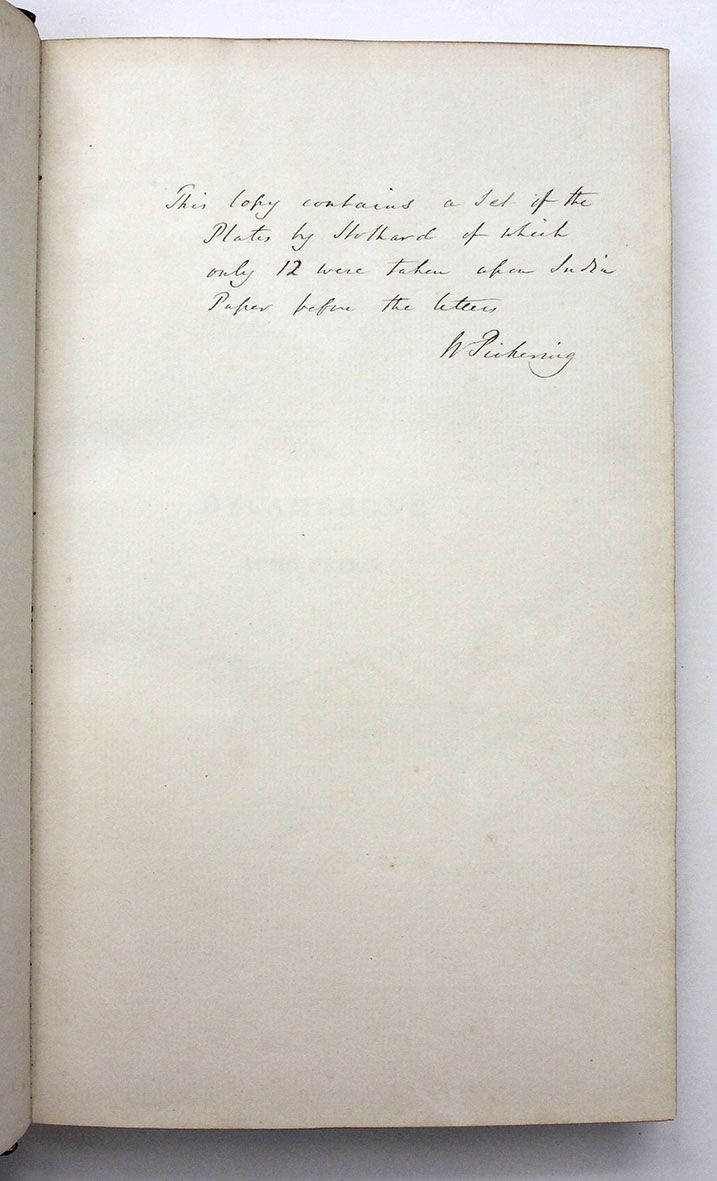 This Copy contains a Set of the
Plates by Stothard of which
only 12 were taken upon India
Paper before the letters
W Pickering
DECAMERONE
TOMO PRIMO